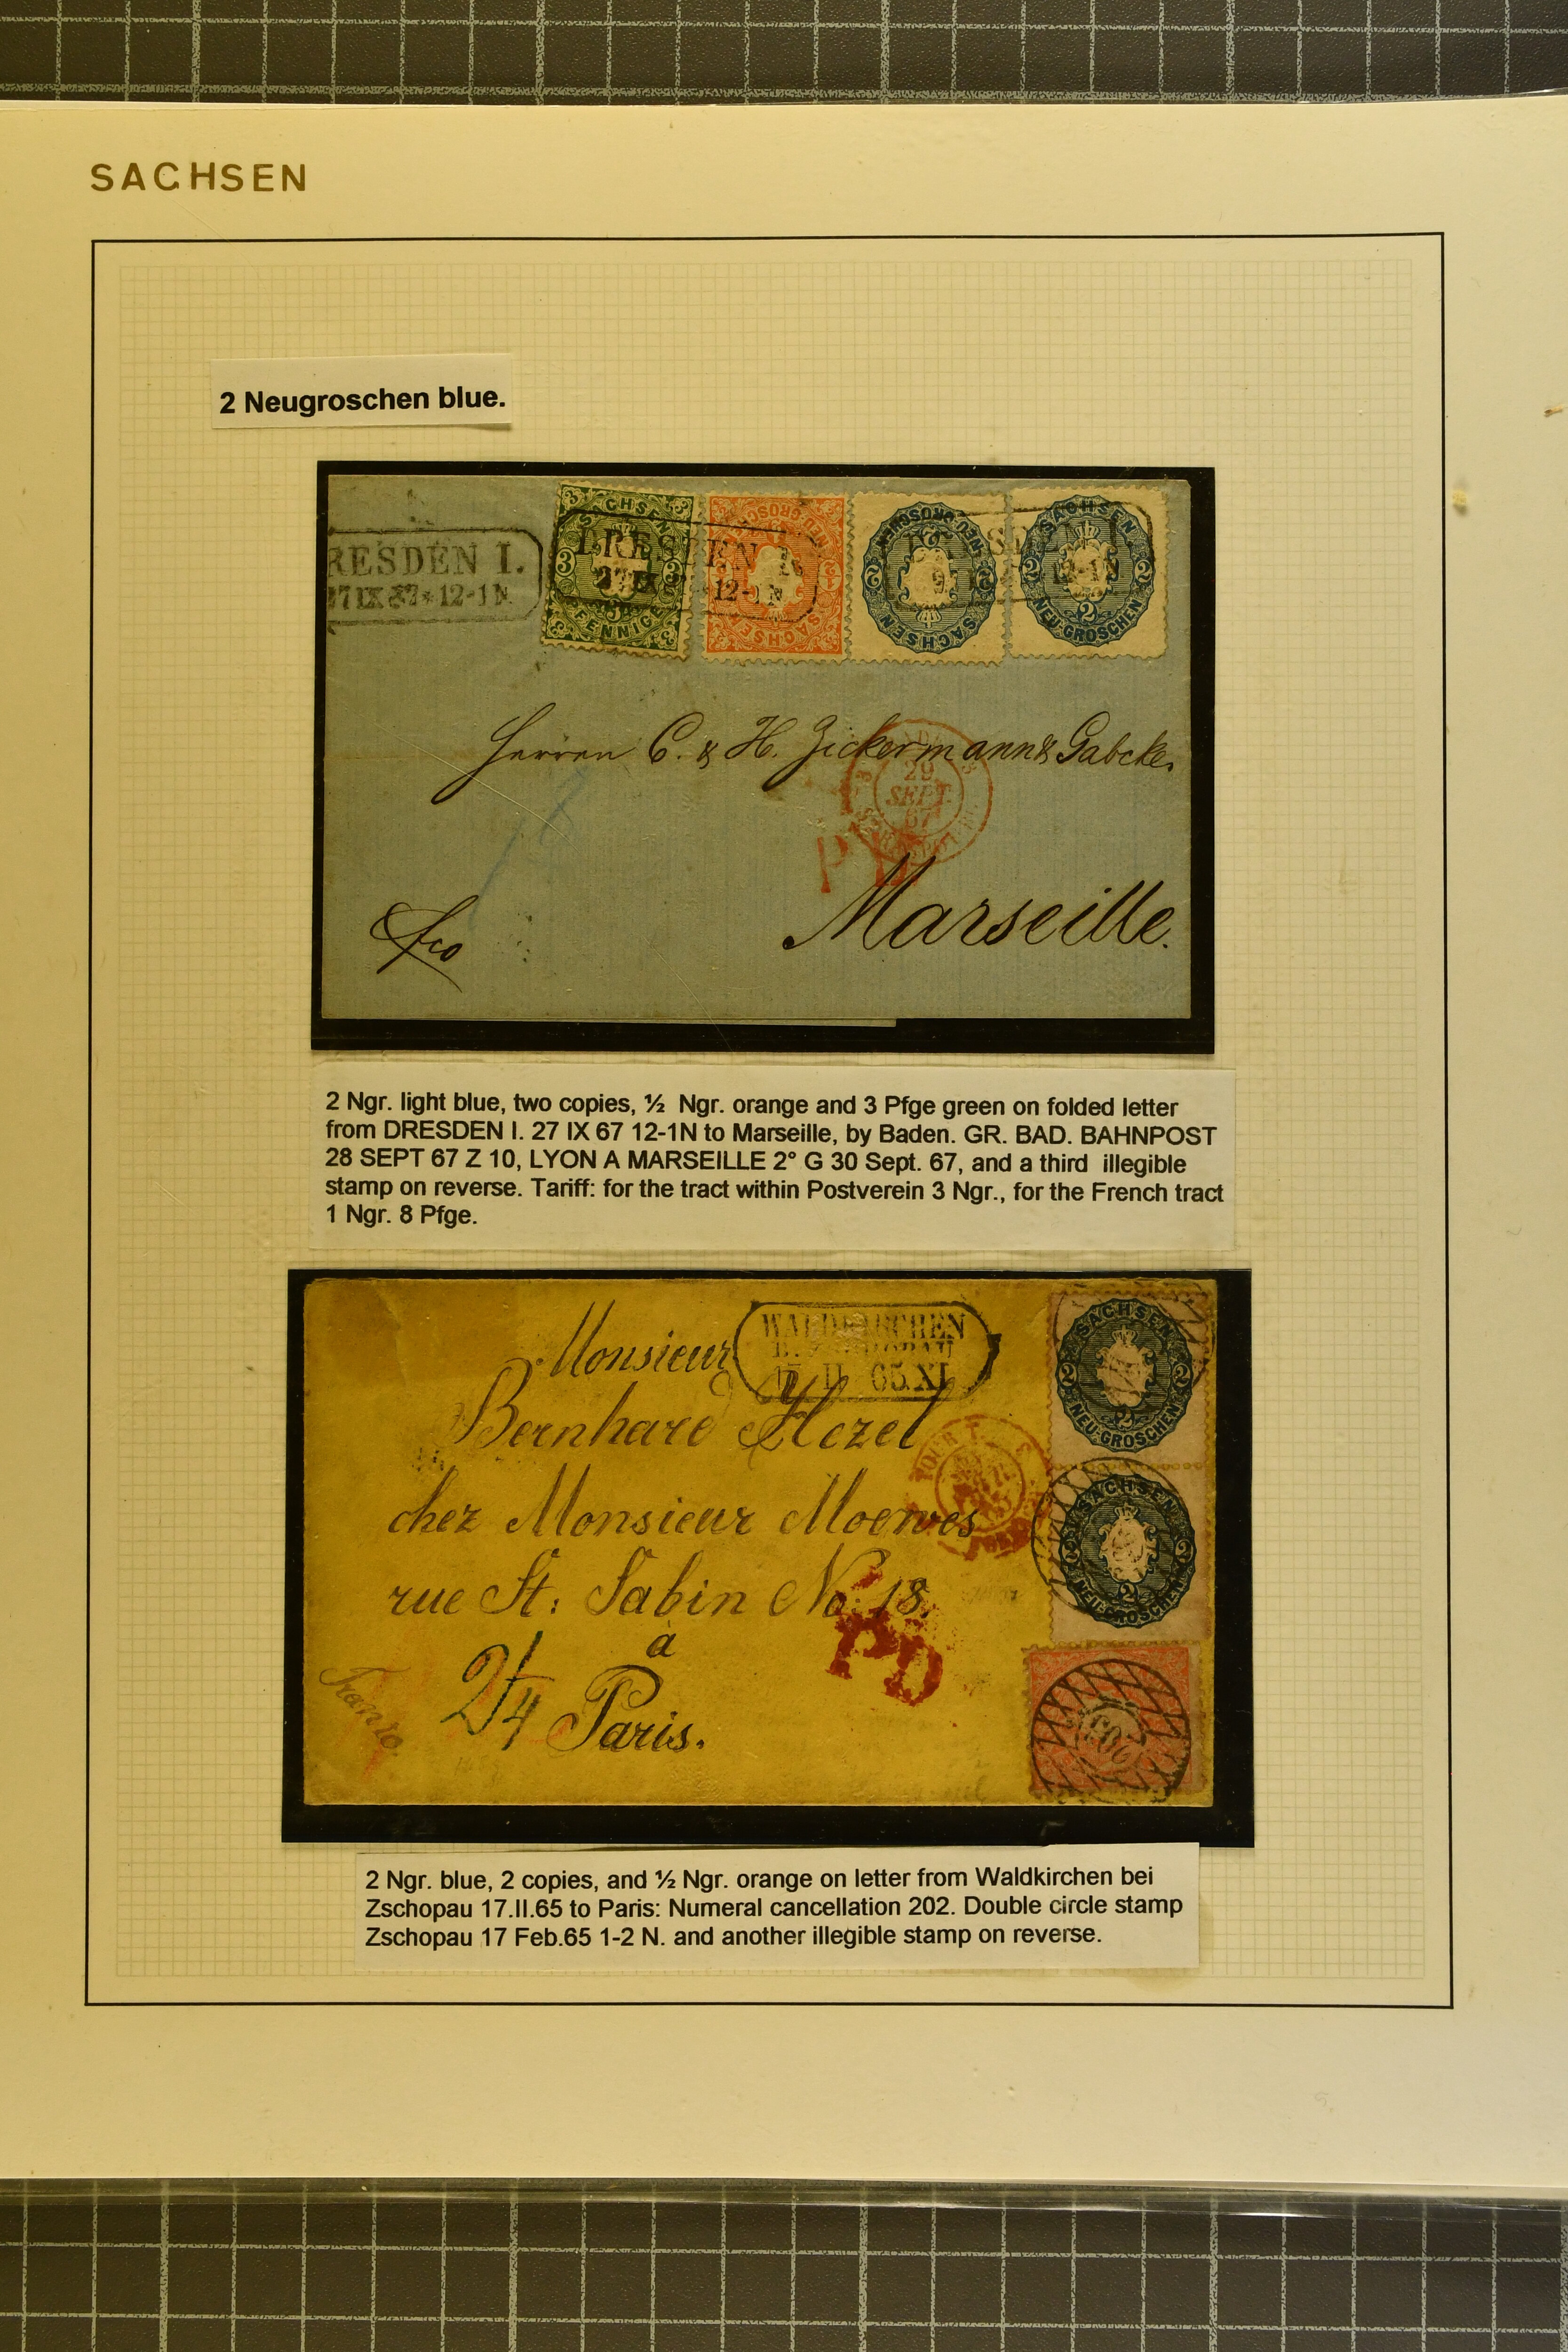 SACHSEN
2 Neugroschen blue.
RESDEN I.
27 IX 67 * 12-1 N.
SACHSEN
3
3
PFENNIGE
DRESDEN I.
27 IX
12-1 N
NEU-GROSCHEN
SACHSEN
NEU-GROSCHEN
2
SACHSEN
SACHSEN
2
2
2
NEU-GROSCHEN
12-1N
Herren C. & H. Zickermann & Gabcke.
29
SEPT.
67
P.D.
Marseille.
fco
2 Ngr. light blue, two copies, ½ Ngr. orange and 3 Pfge green on folded letter
from DRESDEN I. 27 IX 67 12-1N to Marseille, by Baden. GR. BAD. BAHNPOST
28 SEPT 67 Z 10, LYON A MARSEILLE 2° G 30 Sept. 67, and a third illegible
stamp on reverse. Tariff: for the tract within Postverein 3 Ngr., for the French tract
1 Ngr. 8 Pfge.
Monsieur
WALDKIRCHEN
B. ZSCHOPAU
17 II 65. XI
Bernhard Hezel
chez Monsieur Moewes
rue St: Sabin No: 18.
à
Paris.
2/4
Franco.
PD
SACHSEN
2
2
2
NEU-GROSCHEN
SACHSEN
2
2
2
NEU-GROSCHEN
202
2 Ngr. blue, 2 copies, and ½ Ngr. orange on letter from Waldkirchen bei
Zschopau 17.II.65 to Paris: Numeral cancellation 202. Double circle stamp
Zschopau 17 Feb.65 1-2 N. and another illegible stamp on reverse.